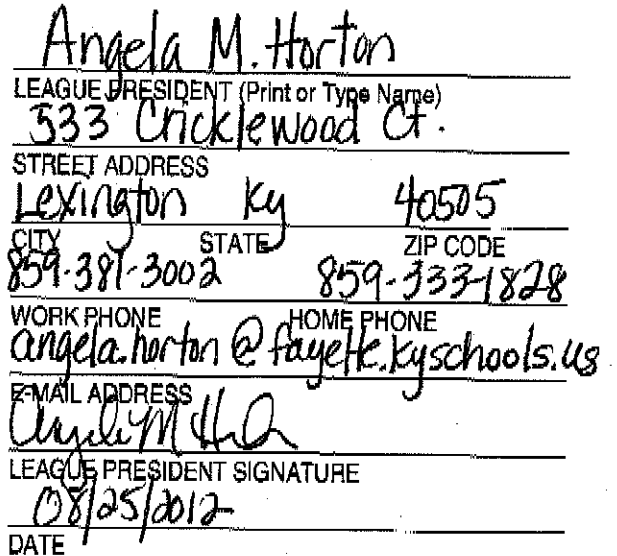 Angela M. Horton
LEAGUE PRESIDENT (Print or Type Name)
533 Cricklewood Ct.
STREET ADDRESS
Lexington Ky 40505
CITY STATE ZIP CODE
859-381-3002 859-333-1828
WORK PHONE HOME PHONE
angela.horton@fayette.kyschools.us
E-MAIL ADDRESS
Angela M Horton
LEAGUE PRESIDENT SIGNATURE
08/25/2012
DATE